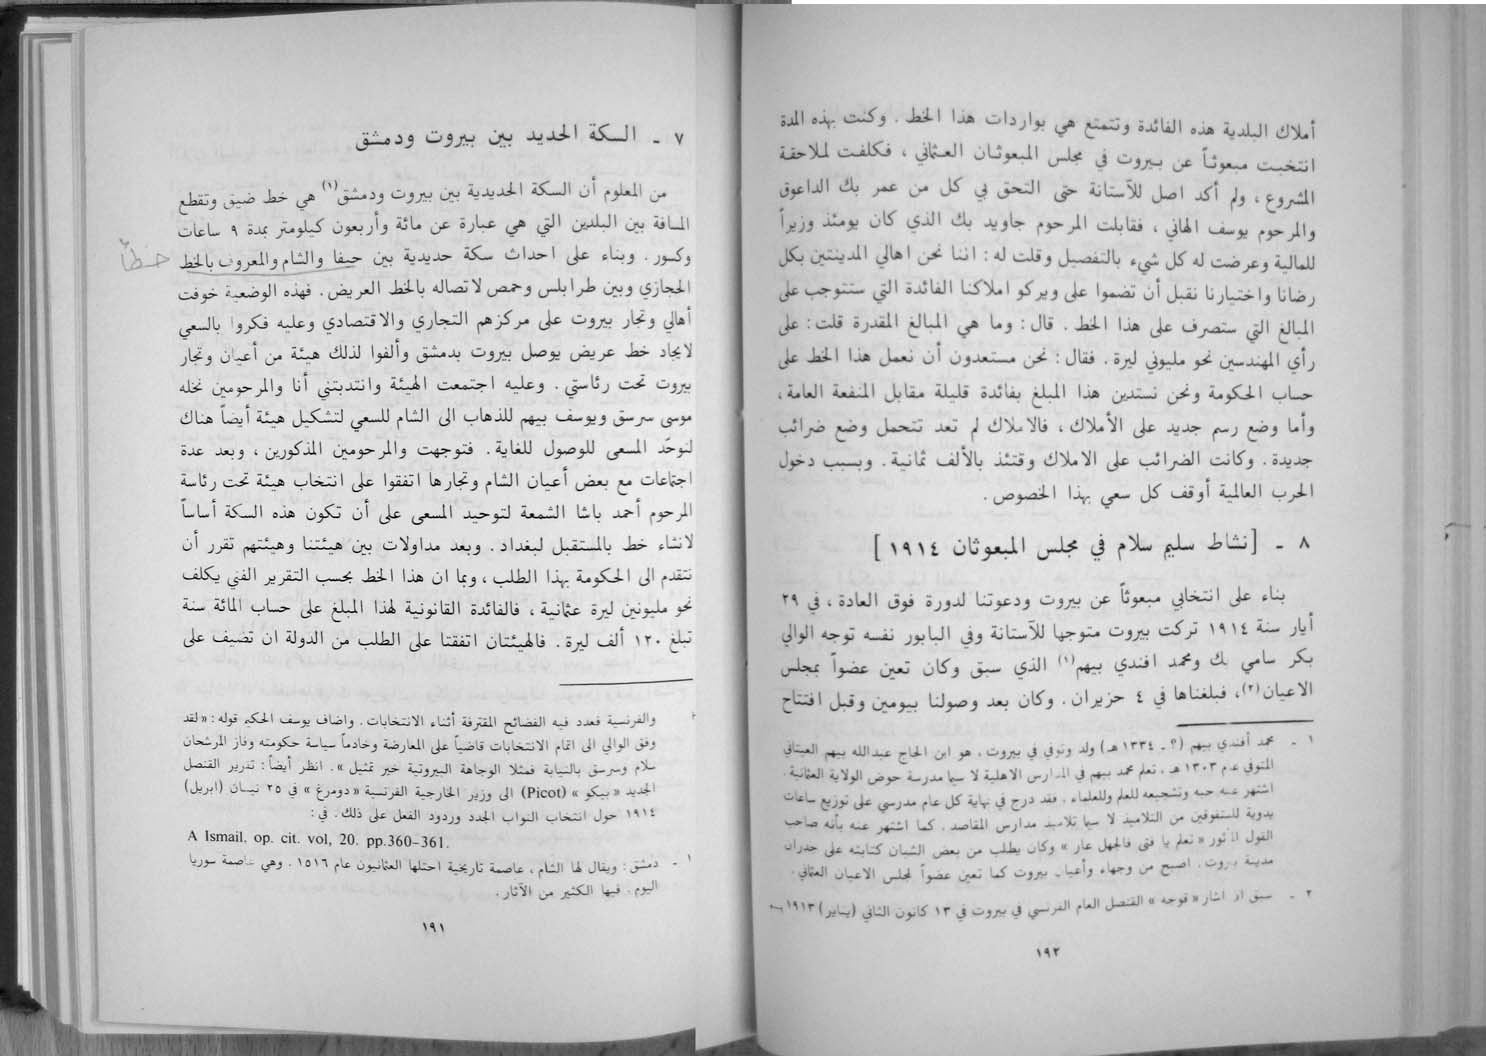 ٧ ـ السكة الحديد بين بيروت ودمشق
من المعلوم أن السكة الحديدية بين بيروت ودمشق(١) هي خط ضيق وتقطع
المسافة بين البلدين التي هي عبارة عن مائة وأربعون كيلومتر بمدة ٩ ساعات
وكسور . وبناء على احداث سكة حديدية بين حيفا والشام والمعروف بالخط
خطأ
الحجازي وبين طرابلس وحمص لاتصاله بالخط العريض . فهذه الوضعية خوفت
أهالي وتجار بيروت على مركزهم التجاري والاقتصادي وعليه فكروا بالسعي
لايجاد خط عريض يوصل بيروت بدمشق وألفوا لذلك هيئة من أعيان وتجار
بيروت تحت رئاستي . وعليه اجتمعت الهيئة وانتدبتني أنا والمرحومين نخله
موسى سرسق ويوسف بيهم للذهاب الى الشام للسعي لتشكيل هيئة أيضاً هناك
لنوحّد المسعى للوصول للغاية . فتوجهت والمرحومين المذكورين ، وبعد عدة
اجتماعات مع بعض أعيان الشام وتجارها اتفقوا على انتخاب هيئة تحت رئاسة
المرحوم أحمد باشا الشمعة لتوحيد المسعى على أن تكون هذه السكة أساساً
لانشاء خط بالمستقبل لبغداد . وبعد مداولات بين هيئتنا وهيئتهم تقرر أن
نتقدم الى الحكومة بهذا الطلب ، وبما ان هذا الخط بحسب التقرير الفني يكلف
نحو مليونين ليرة عثمانية ، فالفائدة القانونية لهذا المبلغ على حساب المائة سنة
تبلغ ١٢٠ ألف ليرة . فالهيئتان اتفقتا على الطلب من الدولة ان تضيف على
والفرنسية فعدد فيه الفضائح المقترفة أثناء الانتخابات . واضاف يوسف الحكيم قوله : « لقد
وفق الوالي الى اتمام الانتخابات قاضياً على المعارضة وخادماً سياسة حكومته وفاز المرشحان
سلام وسرسق بالنيابة فمثلا الوجاهة البيروتية خير تمثيل » . انظر أيضاً : تقرير القنصل
الجديد « بيكو » (Picot) الى وزير الخارجية الفرنسية « دومرغ » في ٢٥ نيسان (ابريل)
١٩١٤ حول انتخاب النواب الجدد وردود الفعل على ذلك . في :
A Ismail, op. cit. vol, 20. pp.360-361.
١ ـ دمشق : ويقال لها الشام ، عاصمة تاريخية احتلها العثمانيون عام ١٥١٦ . وهي عاصمة سوريا
اليوم . فيها الكثير من الآثار .
١٩١
أملاك البلدية هذه الفائدة وتتمتع هي بواردات هذا الخط . وكنت بهذه المدة
انتخبت مبعوثاً عن بيروت في مجلس المبعوثان العثماني ، فكلفت لملاحقة
المشروع ، ولم أكد اصل للآستانة حتى التحق بي كل من عمر بك الداعوق
والمرحوم يوسف الهاني ، فقابلت المرحوم جاويد بك الذي كان يومئذ وزيراً
للمالية وعرضت له كل شيء بالتفصيل وقلت له : اننا نحن اهالي المدينتين بكل
رضانا واختيارنا نقبل أن تضموا على ويركو املاكنا الفائدة التي ستتوجب على
المبالغ التي ستصرف على هذا الخط . قال : وما هي المبالغ المقدرة قلت : على
رأي المهندسين نحو مليوني ليرة . فقال : نحن مستعدون أن نعمل هذا الخط على
حساب الحكومة ونحن نستدين هذا المبلغ بفائدة قليلة مقابل المنفعة العامة ،
وأما وضع رسم جديد على الأملاك ، فالاملاك لم تعد تتحمل وضع ضرائب
جديدة . وكانت الضرائب على الاملاك وقتئذ بالألف ثمانية . وبسبب دخول
الحرب العالمية أوقف كل سعي بهذا الخصوص .
٨ ـ [نشاط سليم سلام في مجلس المبعوثان ١٩١٤]
بناء على انتخابي مبعوثاً عن بيروت ودعوتنا لدورة فوق العادة ، في ٢٩
أيار سنة ١٩١٤ تركت بيروت متوجها للآستانة وفي البابور نفسه توجه الوالي
بكر سامي بك ومحمد افندي بيهم(١) الذي سبق وكان تعين عضواً بمجلس
الاعيان(٢)، فبلغناها في ٤ حزيران . وكان بعد وصولنا بيومين وقبل افتتاح
١ ـ محمد أفندي بيهم (؟ ـ ١٣٣٤ هـ) ولد وتوفي في بيروت . هو ابن الحاج عبدالله بيهم العيتاني
المتوفي عام ١٣٠٣ هـ . تعلم محمد بيهم في المدارس الاهلية لا سيما مدرسة حوض الولاية العثمانية .
اشتهر عنه حبه وتشجيعه للعلم وللعلماء . فقد درج في نهاية كل عام مدرسي على توزيع ساعات
يدوية للمتفوقين من التلاميذ لا سيما تلاميذ مدارس المقاصد . كما اشتهر عنه بأنه صاحب
القول المأثور « تعلم يا فتى فالجهل عار » وكان يطلب من بعض الشبان كتابته على جدران
مدينة بيروت . اصبح من وجهاء وأعيان بيروت كما تعين عضواً لمجلس الاعيان العثماني .
٢ ـ سبق ان اشار « قوجه » القنصل العام الفرنسي في بيروت في ١٣ كانون الثاني (يناير) ١٩١٣
١٩٢